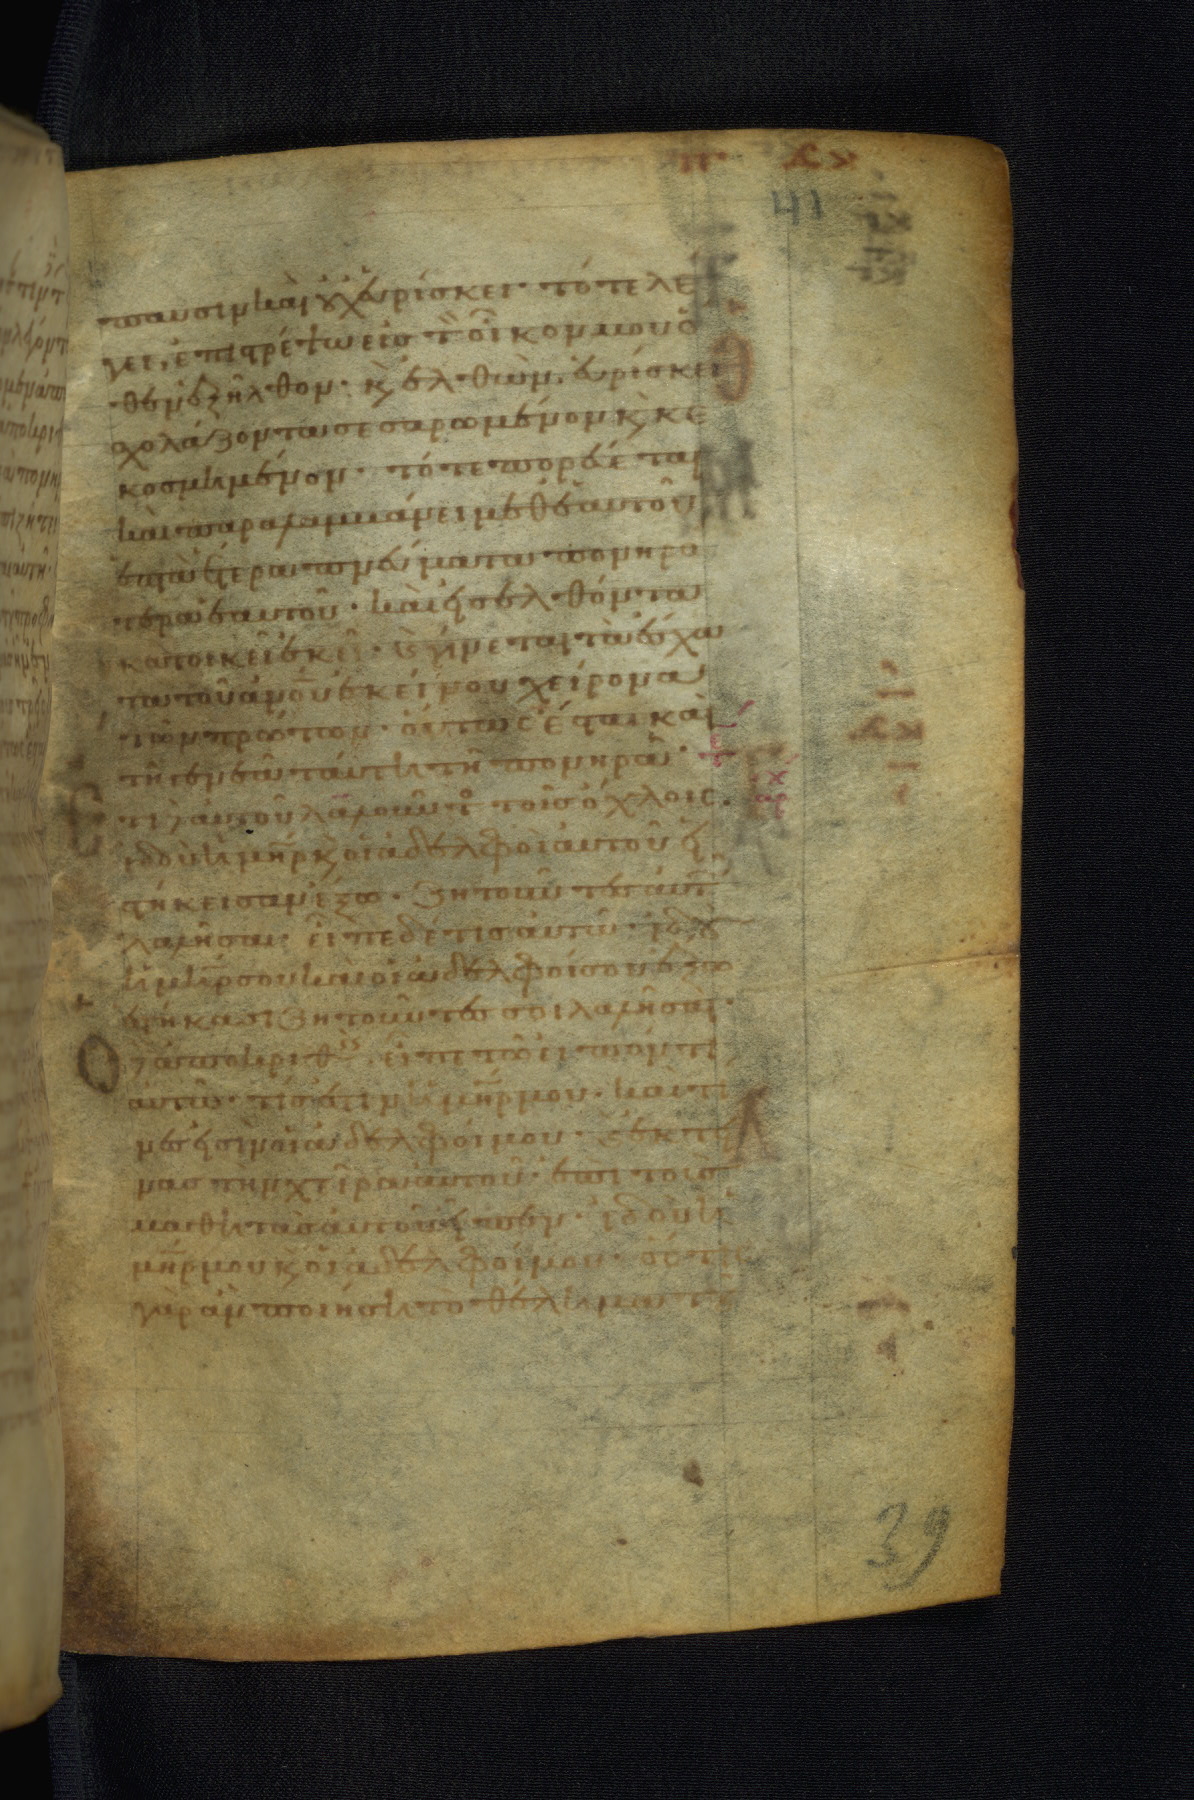 παυσιν και ουχ ευρίσκει· τότε λέ
γει, ἐπιστρέψω εἰς τὸν οἶκόν μου ὅ
θεν ἐξῆλθον· κ̀ ἐλθὼν, εὑρίσκει
σχολάζοντα σεσαρωμένον κ̀ κε
κοσμημένον· τότε πορεύεται
καὶ παραλαμβάνει μεθ' ἑαυτοῦ
ἑπτὰ ἕτερα πνεύματα πονηρό
τερα ἑαυτοῦ· καὶ εἰσελθόντα
κατοικεῖ ἐκεῖ· κ̀ γίνεται τὰ ἔσχα
τα τοῦ ἀνου ἐκείνου χείρονα
τῶν πρώτων· οὕτως ἔσται καὶ
τῆ γενεᾶ ταύτη τῆ πονηρᾶ·
Ἔτι δὲ αὐτοῦ λαλοῦντος τοῖς ὄχλοις·
ἰδοὺ ἡ μηρ κ̀ οἱ ἀδελφοὶ αὐτοῦ εἱ
στήκεισαν ἔξω· ζητοῦντες αὐτῶ
λαλῆσαι· εἶπε δέ τις αὐτῶ· ἰδοὺ
ἡ μηρ σου καὶ οἱ ἀδελφοί σου ἔξω
ἑστήκασι ζητοῦντές σοι λαλῆσαι·
Ὁ δὲ ἀποκριθεὶς, εἶπε τῶ εἰπόντι
αὐτῶ· τίς ἐστιν ἡ μηρ μου· καὶ τί
νες εἰσὶν οἱ ἀδελφοί μου· κ̀ ἐκτεί
νας τὴν χεῖρα αὐτοῦ ἐπὶ τοὺς
μαθητὰς αὐτοῦ εἶπεν· ἰδοὺ ἡ
μηρ μου κ̀ οἱ ἀδελφοί μου· ὅστις
γὰρ ἂν ποιήση τὸ θέλημα τοῦ
41
39